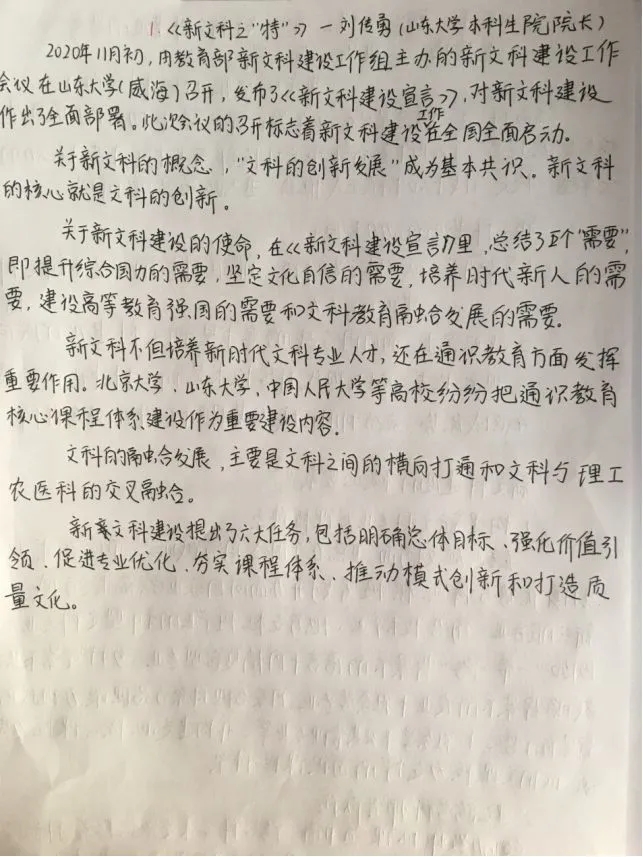 1.《新文科之“特”》—刘传勇(山东大学本科生院院长)
2020年11月初,由教育部新文科建设工作组主办的新文科建设工作
会议在山东大学(威海)召开,发布了《新文科建设宣言》,对新文科建设
作出了全面部署。此次会议的召开标志着新文科建设工作在全国全面启动。
关于新文科的概念,“文科的创新发展”成为基本共识。新文科
的核心就是文科的创新。
关于新文科建设的使命,在《新文科建设宣言》里,总结了五个“需要”,
即提升综合国力的需要,坚定文化自信的需要,培养时代新人的需
要,建设高等教育强国的需要和文科教育融合发展的需要。
新文科不但培养新时代文科专业人才,还在通识教育方面发挥
重要作用。北京大学、山东大学、中国人民大学等高校纷纷把通识教育
核心课程体系建设作为重要建设内容。
文科的融合发展,主要是文科之间的横向打通和文科与理工
农医科的交叉融合。
新文科建设提出了六大任务,包括明确总体目标、强化价值引
领、促进专业优化、夯实课程体系、推动模式创新和打造质
量文化。